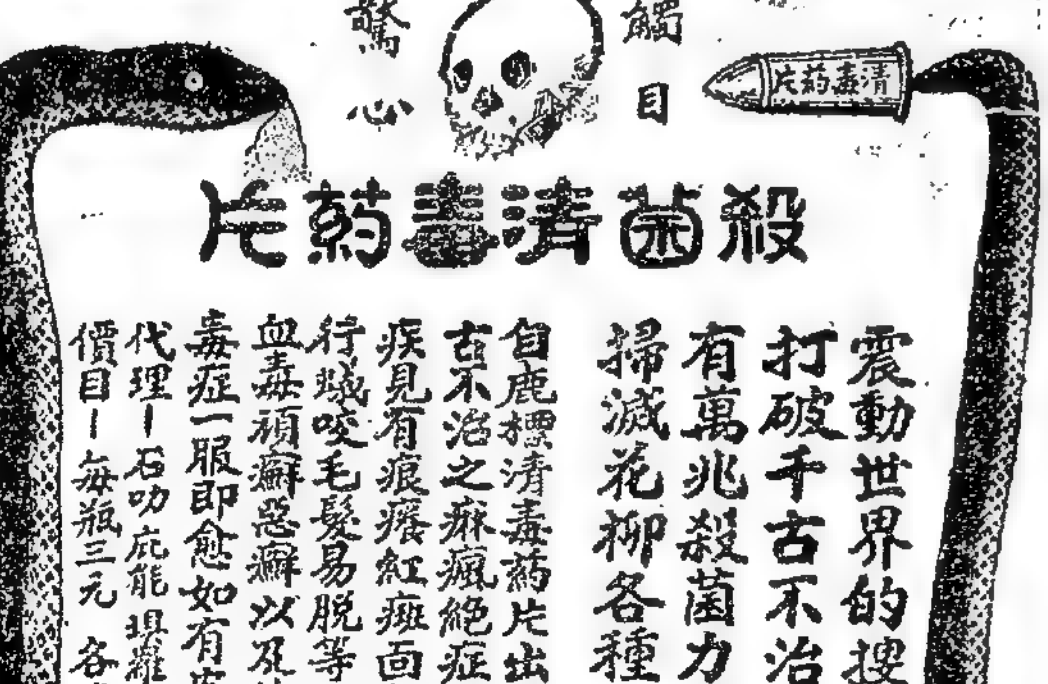 觸目
驚心
清毒葯片
殺菌清毒葯片
震動世界的搜
打破千古不治
有萬兆殺菌力
掃滅花柳各種
自鹿標清毒葯片出
古不治之痳瘋絕症
疾見有痕癢紅斑面
行蟻咬毛髮易脫等
血毒頑癬惡癬以及
毒症一服即愈如有
代理—石叻庇能
價目—每瓶三元 各